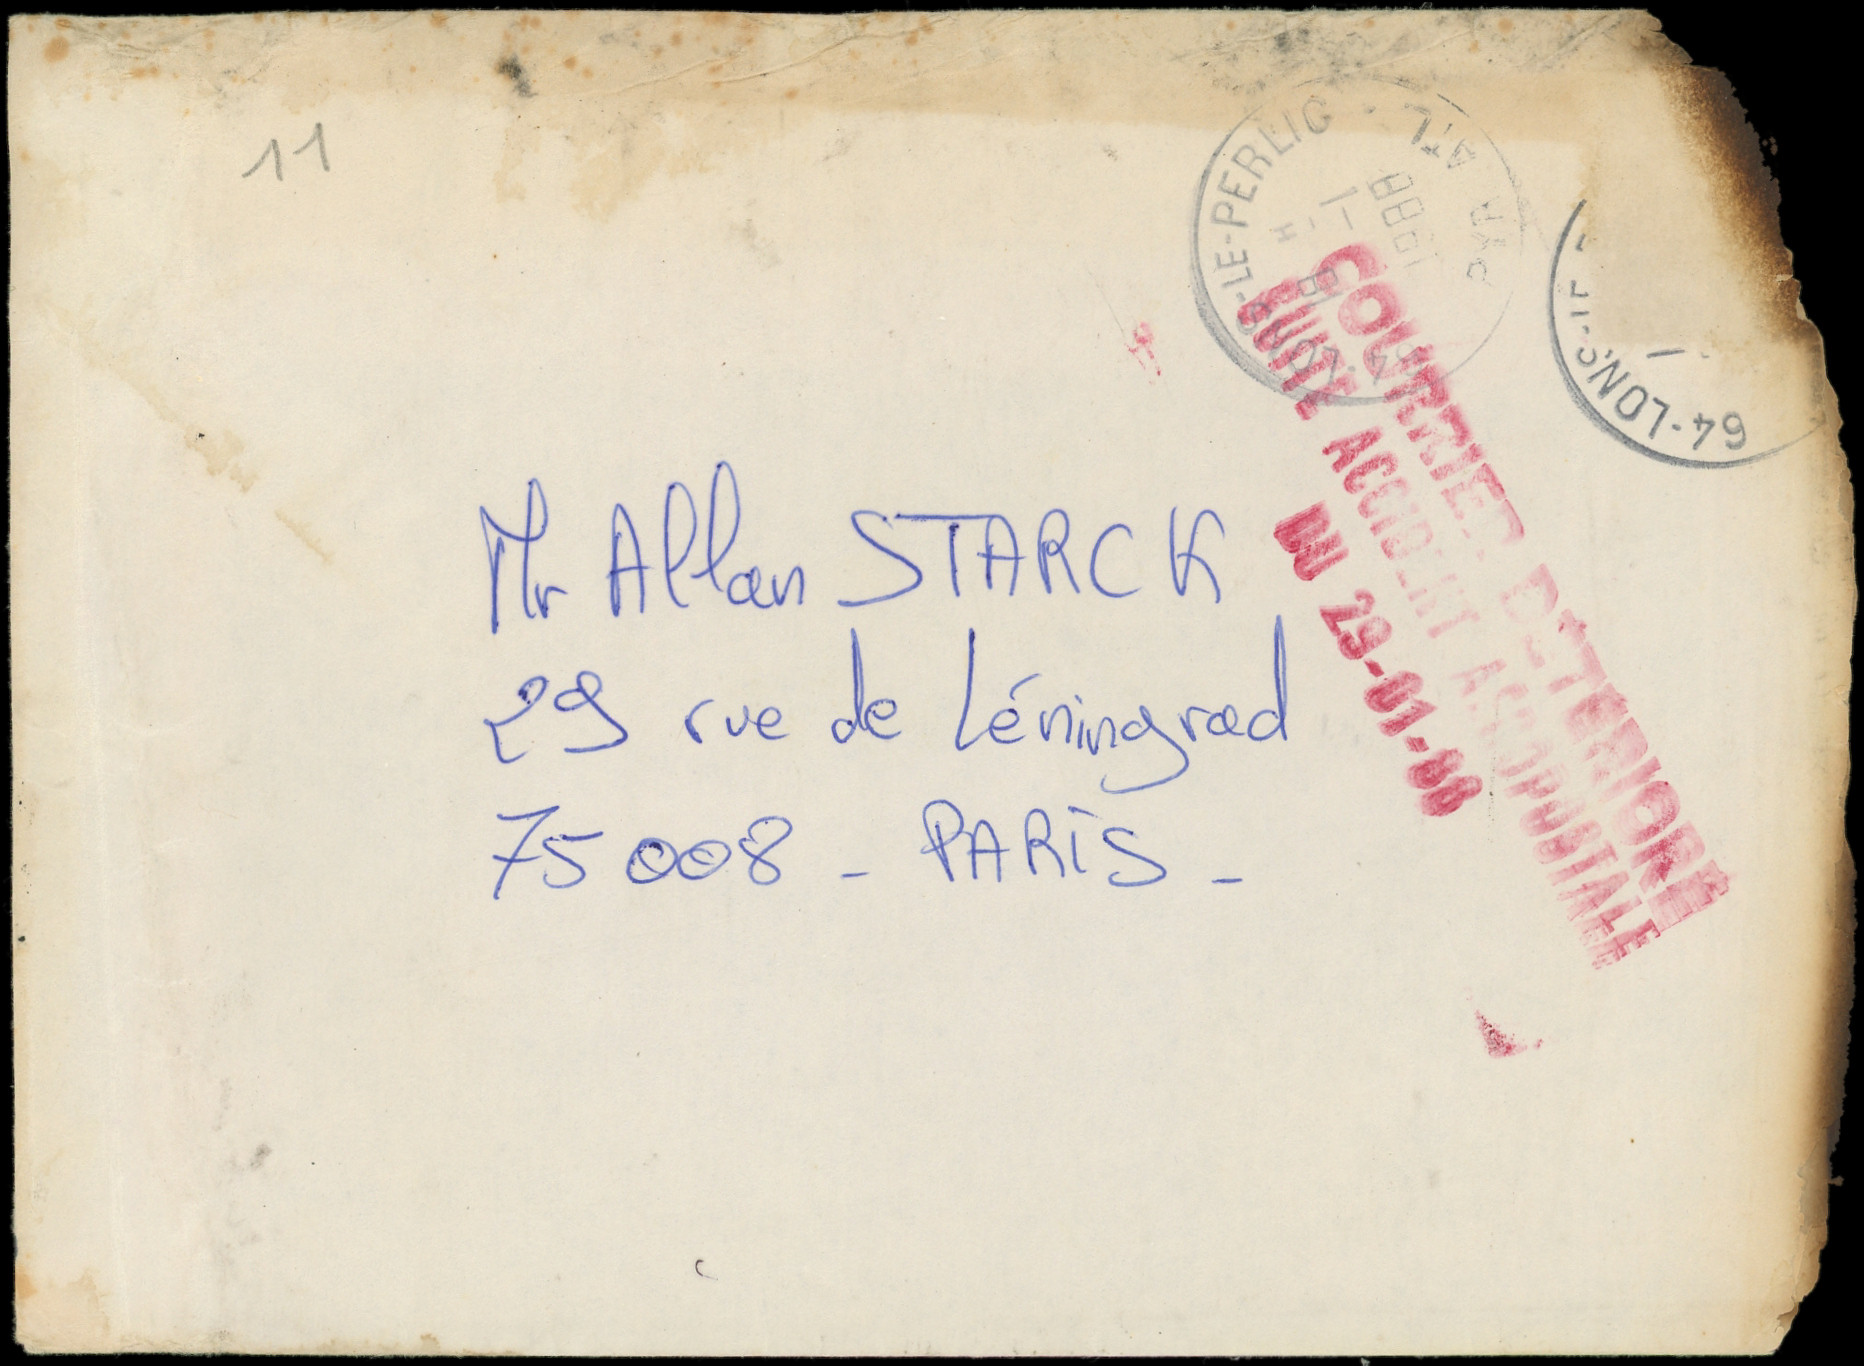 11
64-LONS-LE-PERLIC · PYR. ATL.
18 H
-1
1988
64-LONS-LE-
COURRIER DETERIORE
SUITE ACCIDENT AEROPOSTALE
DU 29-01-88
Mr Allan STARCK
29 rue de Léningrad
75008 - PARIS -